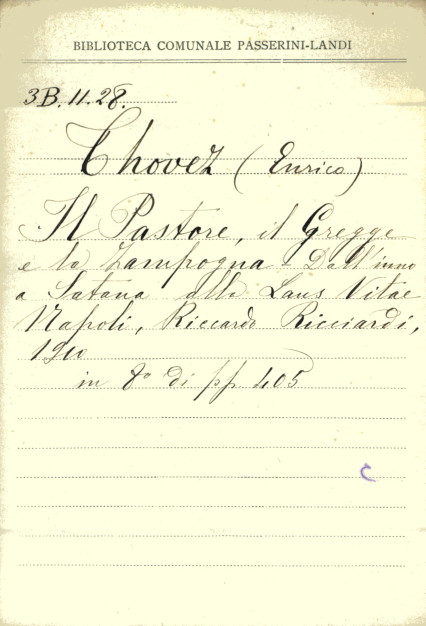 BIBLIOTECA COMUNALE PASSERINI-LANDI
3B.11.28.
Chovez (Enrico)
Il Pastore, il Gregge
e la Zampogna - Dall'inno
a Satana alla Laus Vitae
Napoli, Riccardo Ricciardi,
1910
in 8° di pp 405
c